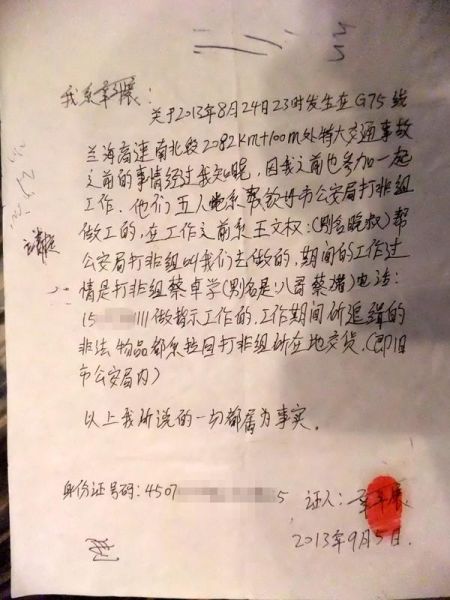 我系覃展：
关于2013年8月24日23时发生在G75线
兰海高速南北段2082km+100m处特大交通事故
之前的事情经过我知呢，因我之前也参加一起
工作，他们五人先系帮钦州市公安局打非组
做工的，在工作之前系王文权：(别名晚叔)帮
公安局打非组叫我们去做的，期间的工作过
情是打非组蔡卓学(别名是：八哥蔡潜)电话：
15 111做指示工作的，工作期间所追缉的
非法物品都系拉回打非组所在地交货。(即旧
市公安局内)
以上我所说的一切都属为事实。
身份证号码：4507 5 证人： 展
2013年9月5日.